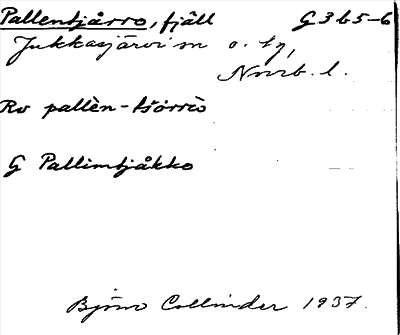 Pallentjårro, fjäll G 3 b 5-6
Jukkasjärvi sn o. tg,
Norrb. l.
Rv pallèn-tšorrò
G Pallimtjåkko
Björn Collinder 1937.